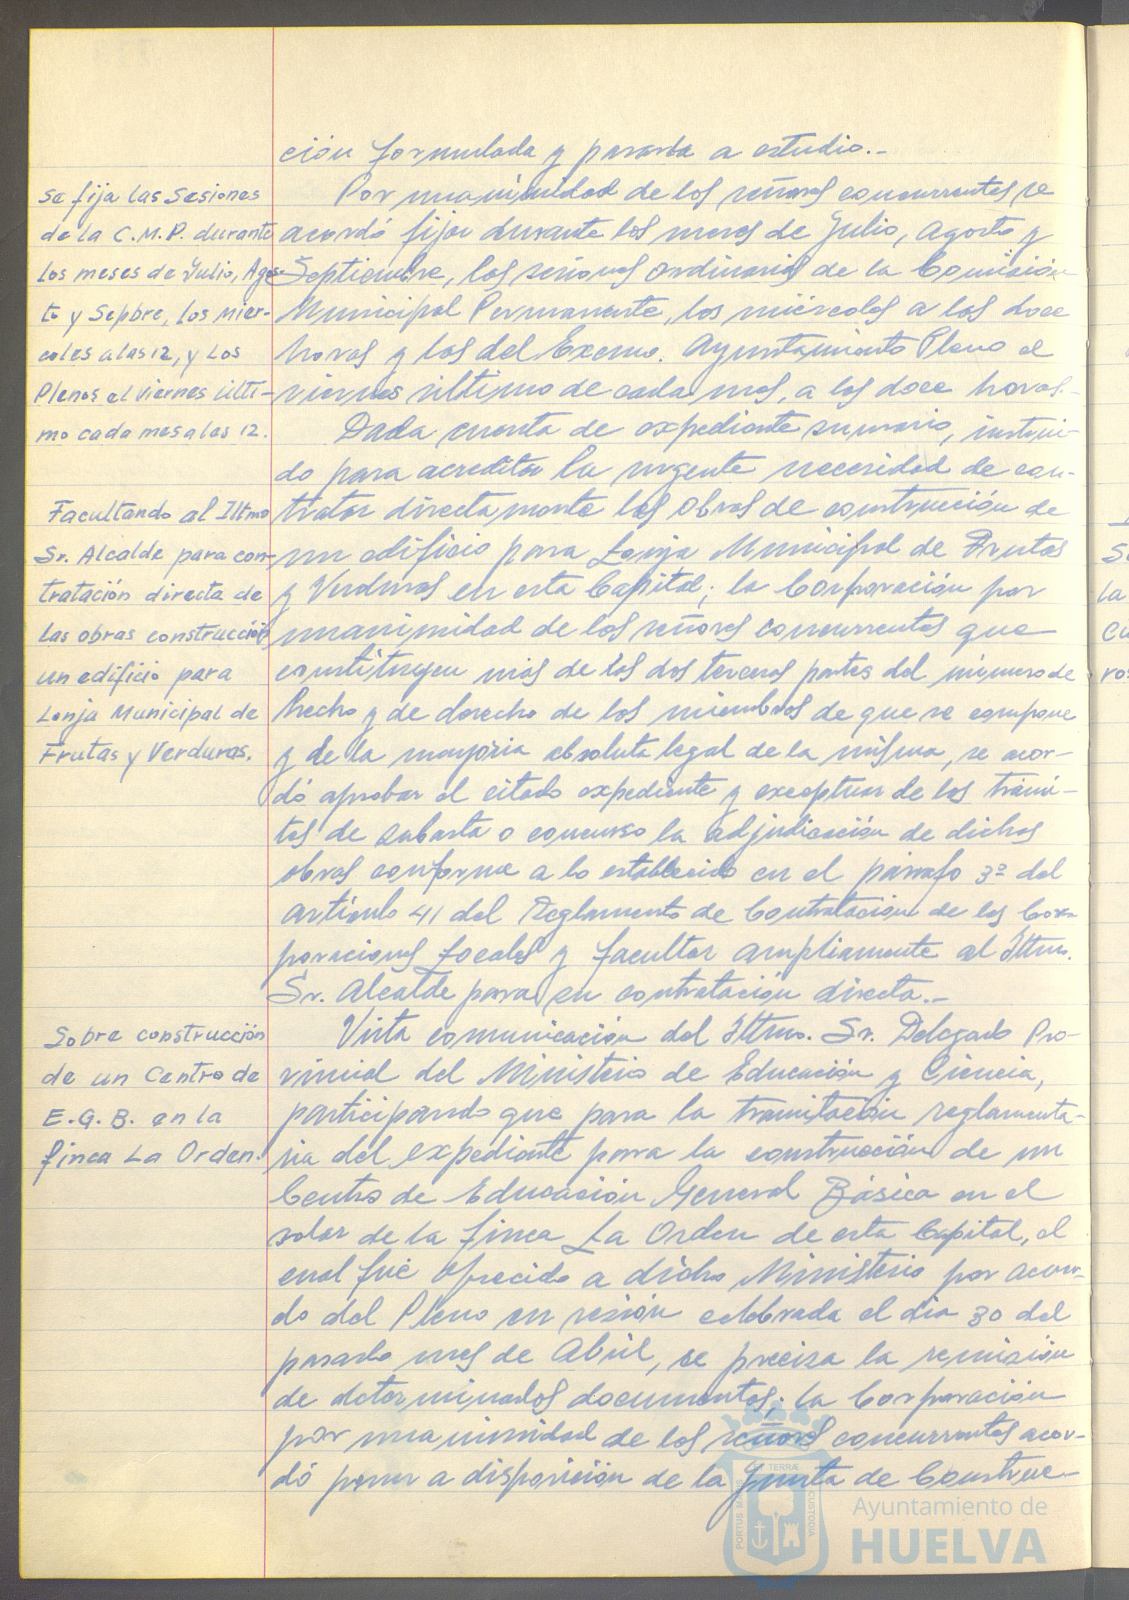 ción formulada y pasarla a estudio.-
Se fija las Sesiones
de la C.M.P. durante
los meses de Julio, Agos-
to y Sepbre, los miér-
coles a las 12, y los
Plenos el viernes últi-
mo cada mes a las 12.
Por unanimidad de los señores concurrentes se
acordó fijar durante los meses de Julio, Agosto y
Septiembre, las sesiones ordinarias de la Comisión
Municipal Permanente, los miércoles a las doce
horas y las del Excmo. Ayuntamiento Pleno el
viernes último de cada mes, a las doce horas.-
Facultando al Iltmo
Sr. Alcalde para con-
tratación directa de
las obras construcción
un edificio para
Lonja Municipal de
Frutas y Verduras.
Dada cuenta de expediente sumario, instrui-
do para acreditar la urgente necesidad de con-
tratar directamente las obras de construcción de
un edificio para Lonja Municipal de Frutas
y Verduras en esta Capital; la Corporación por
unanimidad de los señores concurrentes que
constituyen más de las dos terceras partes del número de
hecho y de derecho de los miembros de que se compone
y de la mayoría absoluta legal de la misma, se acor-
dó aprobar el citado expediente y exceptuar de los trámi-
tes de subasta o concurso la adjudicación de dichas
obras conforme a lo establecido en el párrafo 3º del
artículo 41 del Reglamento de Contratación de las Cor-
poraciones Locales y facultar ampliamente al Iltmo.
Sr. Alcalde para su contratación directa.-
Sobre construcción
de un Centro de
E.G.B. en la
finca La Orden.
Vista comunicación del Iltmo. Sr. Delegado Pro-
vincial del Ministerio de Educación y Ciencia,
participando que para la tramitación reglamenta-
ria del expediente para la construcción de un
Centro de Educación General Básica en el
solar de la finca La Orden de esta Capital, el
cual fué ofrecido a dicho Ministerio por acuer-
do del Pleno en sesión celebrada el día 30 del
pasado mes de Abril, se precisa la remisión
de determinados documentos; la Corporación
por unanimidad de los señores concurrentes acor-
dó poner a disposición de la Junta de Construc-
PORTUS MARIS
ET TERRAE
CUSTODIA
Ayuntamiento de
HUELVA